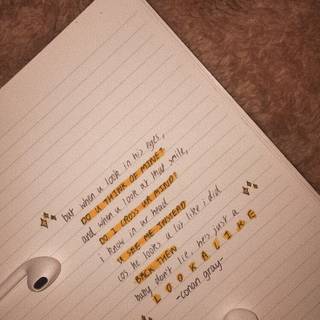 but when u look in his eyes,
DO U THINK OF MINE?
and when u look at that smile,
DO I CROSS UR MIND?
i know in ur head
U SEE ME INSTEAD
cos he looks a lot like i did
BACK THEN
baby don't lie, he's just a
LOOKALIKE
-conan gray-